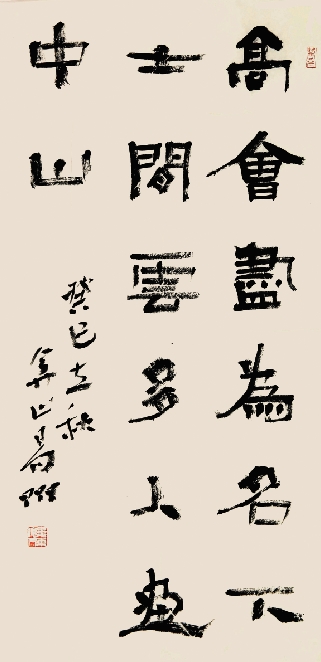 高會盡為名下
士閒雲多入畫
中山
癸巳立秋